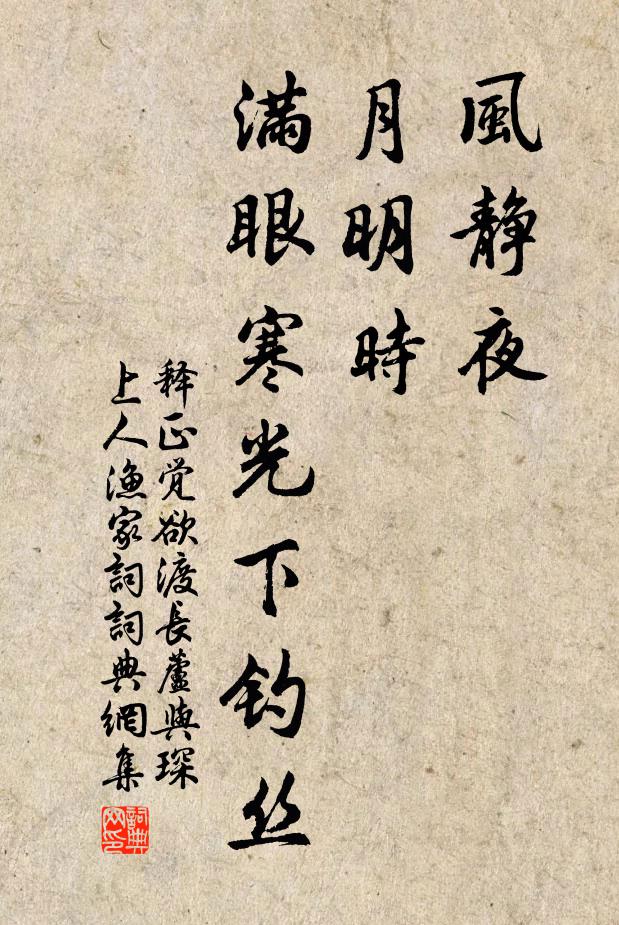 風靜夜
月明時
滿眼寒光下钓丝
释正觉欲渡長蘆與琛
上人漁家詞詞典網集
詞典网印